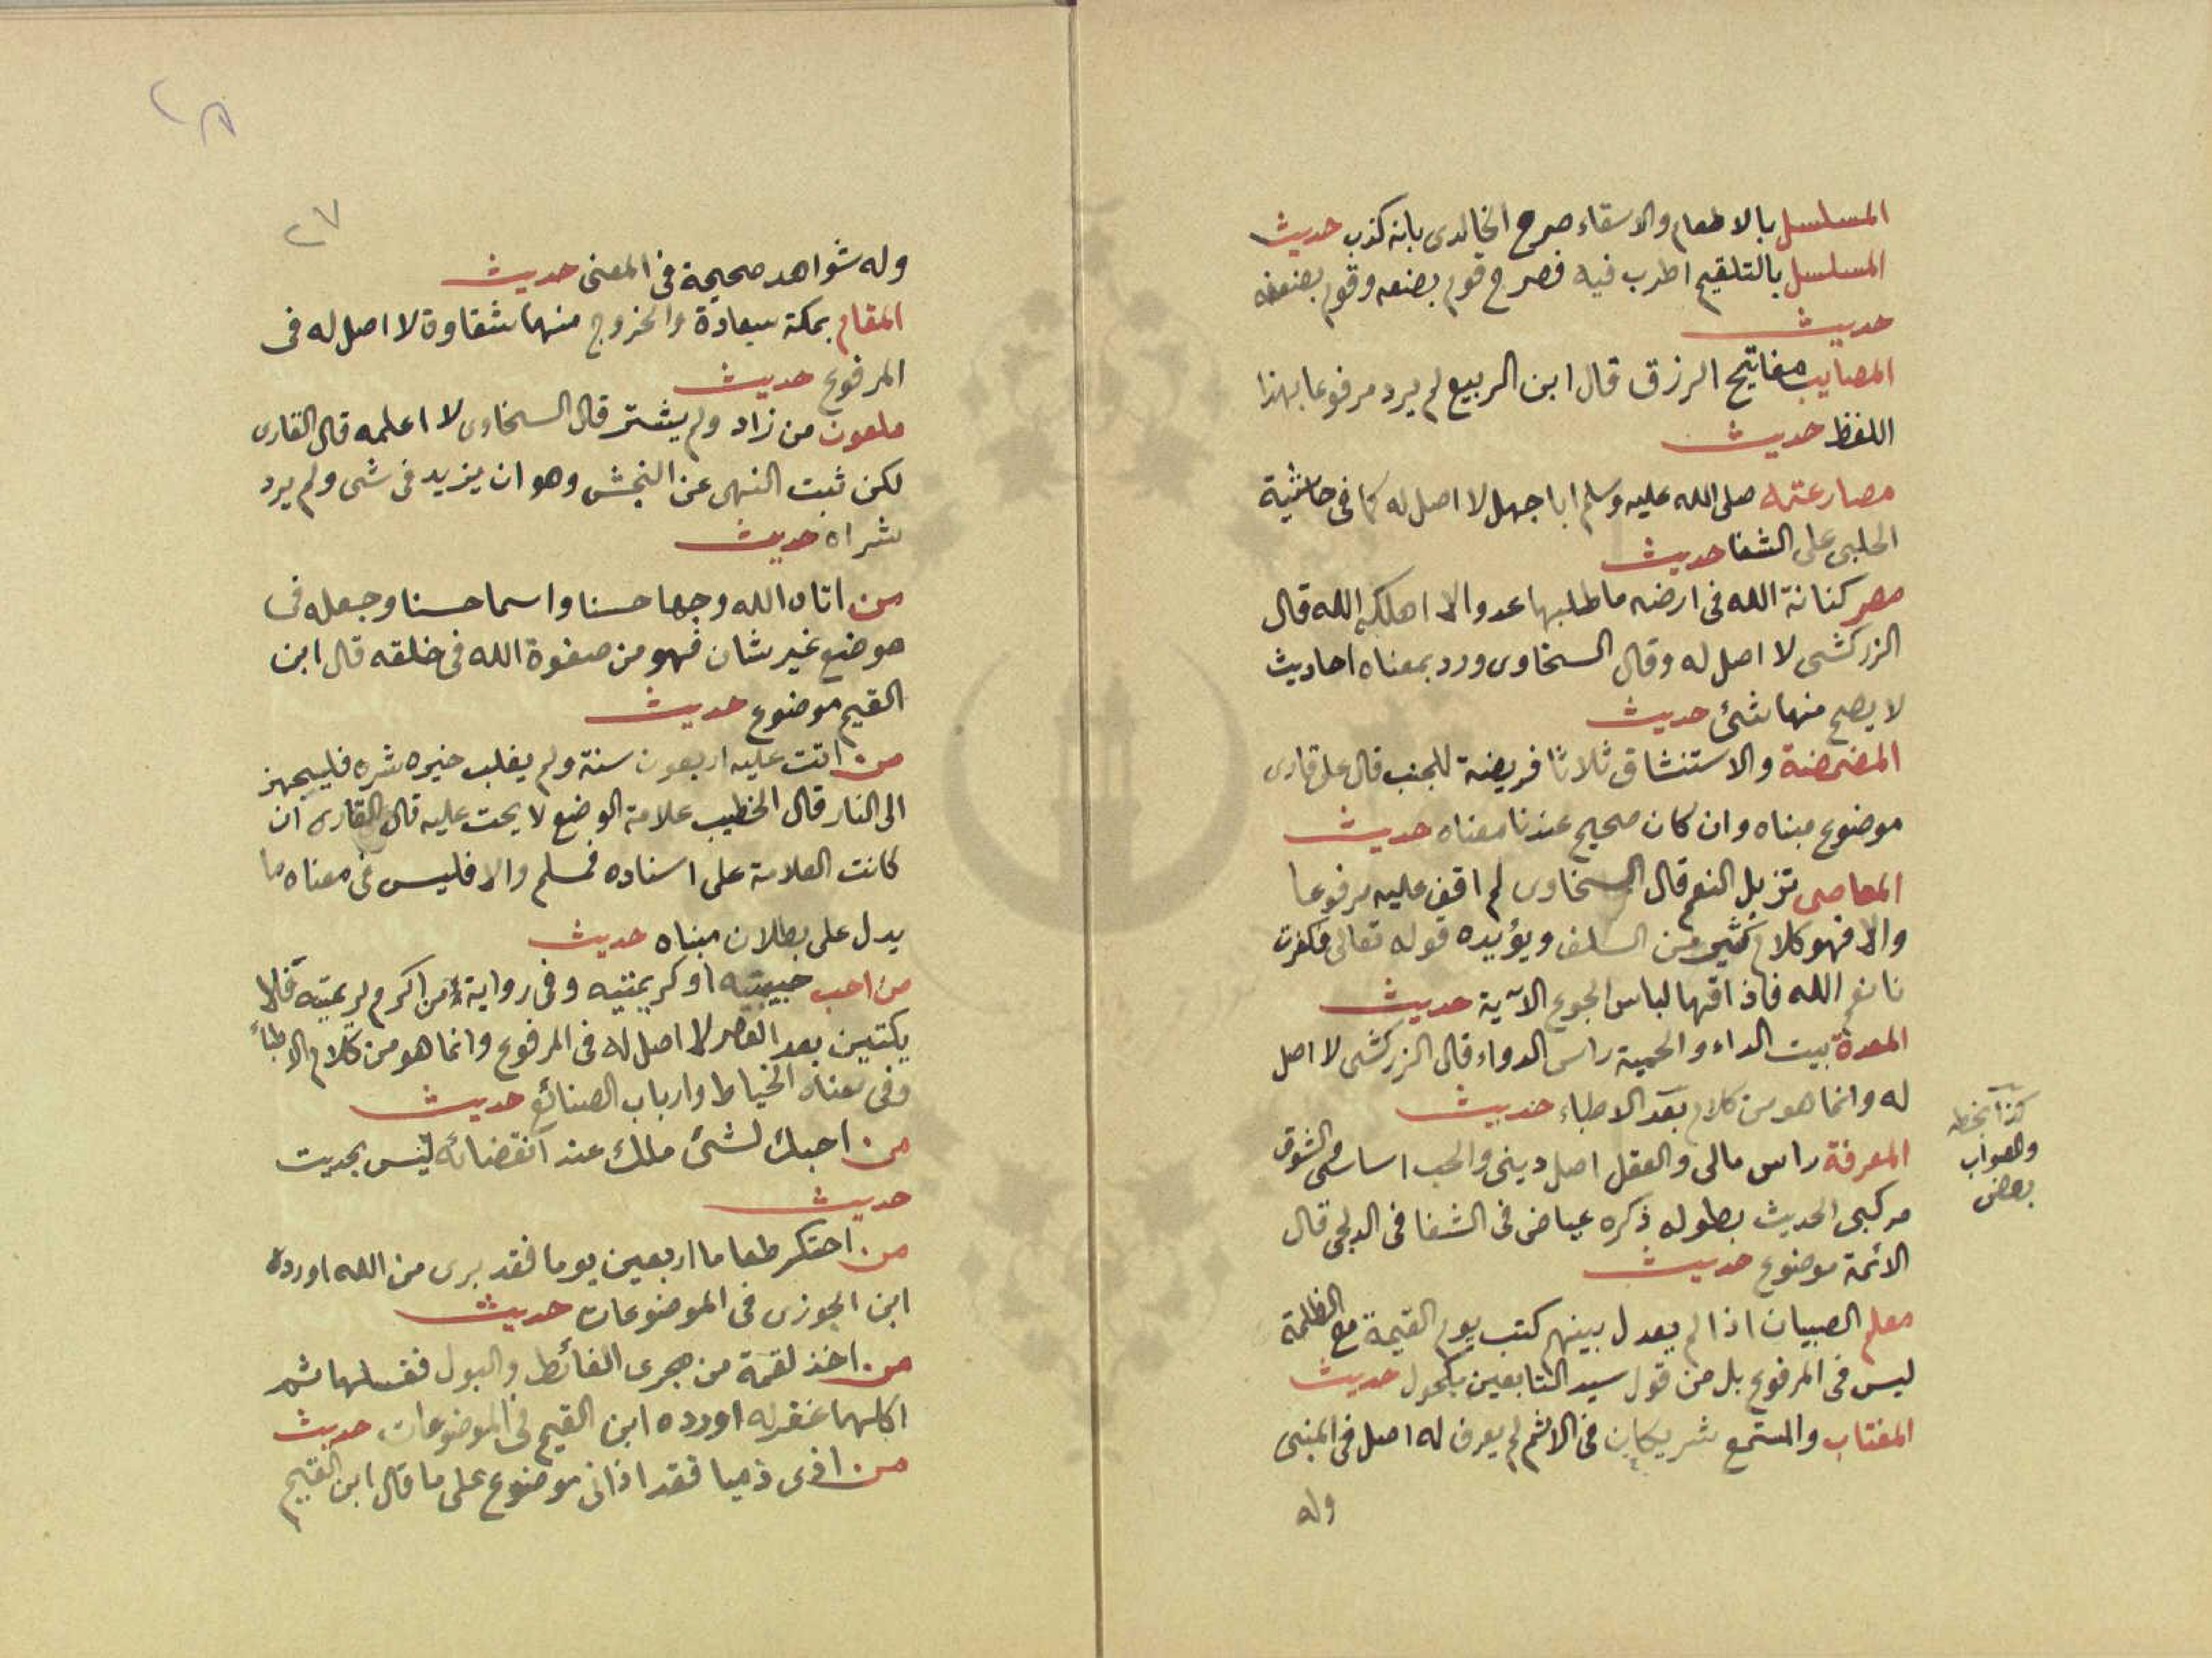 المسلسل بالاطعام والاسقاء صرح الخالدى بانه كذب حديث
المسلسل بالتلقيم اطرب فيه فصرح قوم بضعفه وقوم بضعفه
حديث
المصايب مفاتيح الرزق قال ابن الربيع لم يرد مرفوعا بهذا
اللفظ حديث
مصارعته صلى الله عليه وسلم ابا جهل لا اصل له كما فى حاشية
الحلبى على الشفا حديث
مصر كنانة الله فى ارضه ما طلبها عدو الا اهلكه الله قال
الزركشى لا اصل له وقال السخاوى ورد بمعناه احاديث
لا يصح منها شئ حديث
المضمضة والاستنشاق ثلاثا فريضة للجنب قال على قارى
موضوع مبناه وان كان صحيح عندنا معناه حديث
المعاصى تزيل النعم قال السخاوى لم اقف عليه مرفوعا
والا فهو كلام كثير من السلف ويؤيده قوله تعالى فكفرت
بانعم الله فاذاقها لباس الجوع الآية حديث
المعدة بيت الداء والحمية راس الدواء قال الزركشى لا اصل
له وانما هو من كلام بعد الاطباء حديث
كذا بخطه
والصواب
بعض
المعرفة راس مالى والعقل اصل دينى والحب اساسى والشوق
مركبى الحديث بطوله ذكره عياض فى الشفا فى الدلجى قال
الائمة موضوع حديث
معلم الصبيان اذا لم يعدل بينهم كتب يوم القيمة مع الظلمة
ليس فى المرفوع بل من قول سيد التابعين مكحول حديث
المغتاب والمستمع شريكان فى الاثم لم يعرف له اصل فى المبنى
وله
٢٨
٢٧
وله شواهد صحيحة فى المعنى حديث
المقام بمكة سعادة والخروج منها شقاوة لا اصل له فى
المرفوع حديث
ملعون من زاد ولم يشتر قال السخاوى لا اعلمه قال القارى
لكن ثبت النهى عن النجش وهو ان يزيد فى شى ولم يرد
شراه حديث
من اتاه الله وجها حسنا واسما حسنا وجعله فى
موضع غير شان فهو من صفوة الله فى خلقه قال ابن
القيم موضوع حديث
من اتت عليه اربعون سنة ولم يغلب خيره شره فليجهز
الى النار قال الخطيب علامة الوضع لايحت عليه قال القارى ان
كانت العلامة على اسناده فمسلم والا فليس فى معناه ما
يدل على بطلان مبناه حديث
من احب حبيبتيه او كريمتيه وفى رواية من اكرم كريمتيه فلا
يكتبن بعد العصر لا اصل له فى المرفوع وانما هو من كلام الاطباء
وفى معناه الخياط وارباب الصنائع حديث
من احبك لشئ ملك عند انقضائه ليس بحديث
حديث
من احتكر طعاما اربعين يوما فقد برى من الله اورده
ابن الجوزى فى الموضوعات حديث
من اخذ لقمة من مجرى الغائط والبول فغسلها ثم
اكلها غفر له اورده ابن القيم فى الموضوعات حديث
من اذى ذميا فقد اذانى موضوع على ما قال ابن القيم